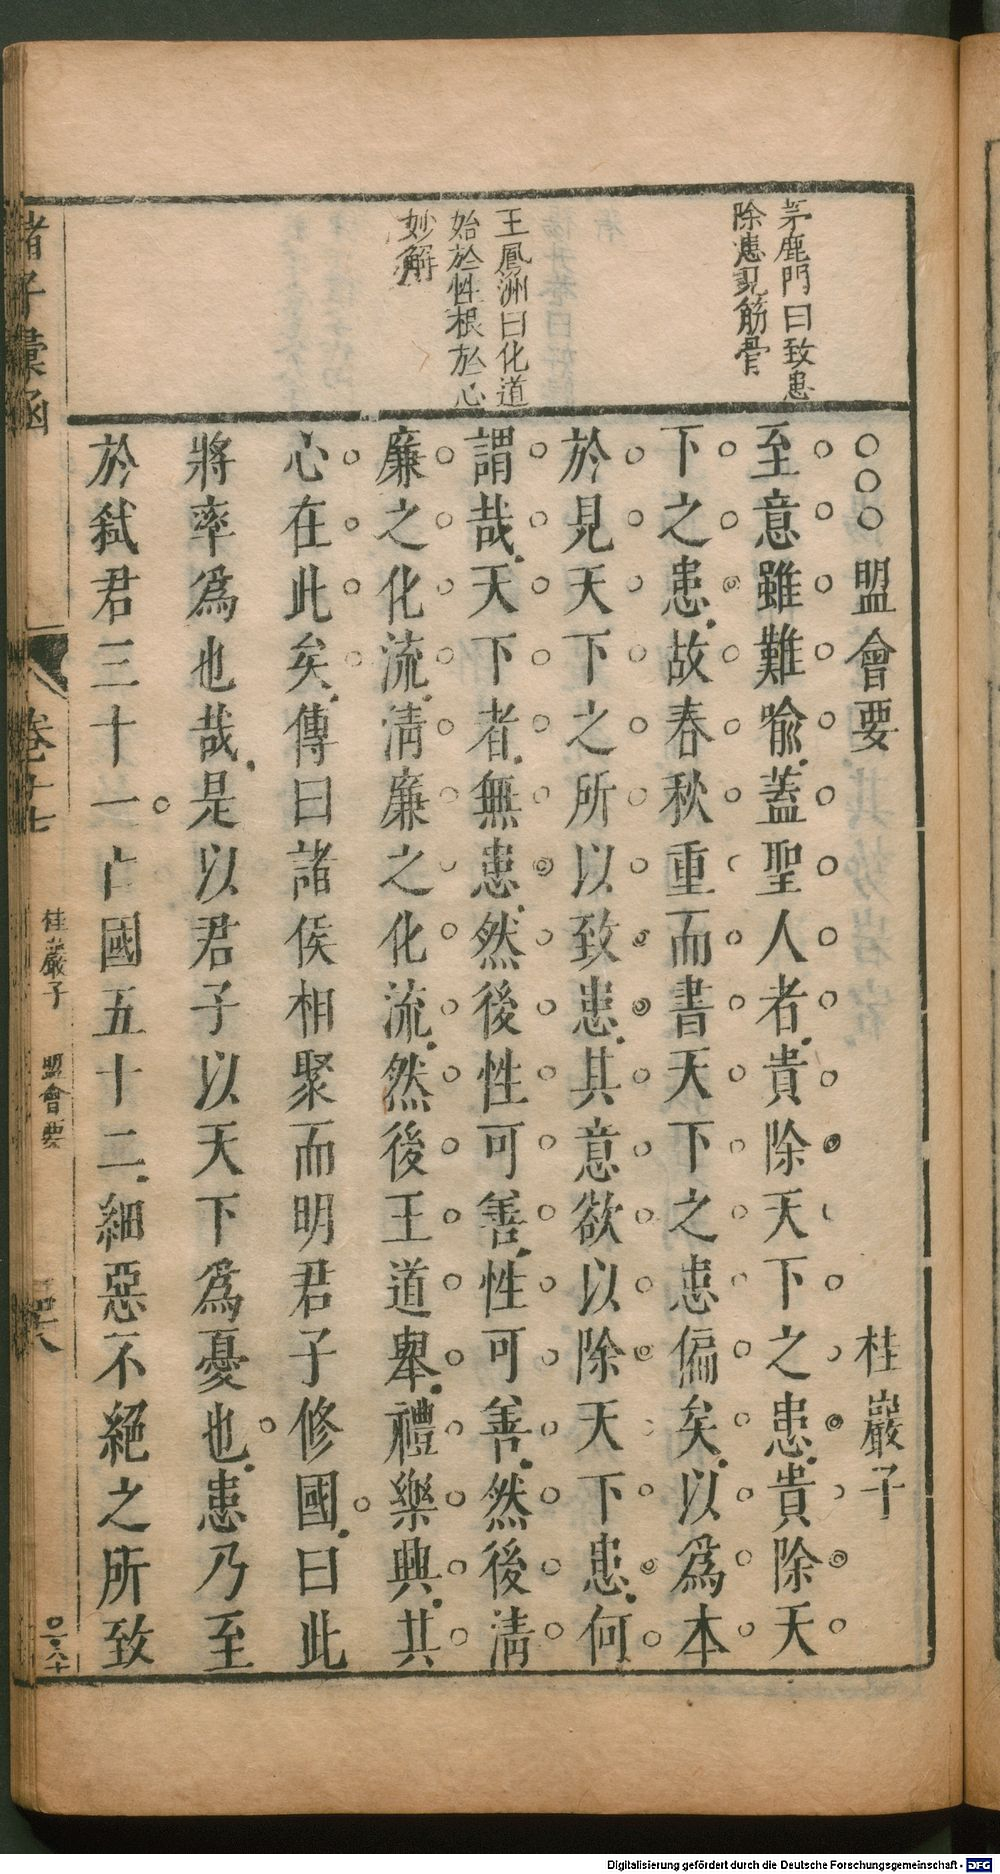 茅鹿門曰致患
除患見筋骨
王鳳洲曰化道
始於性根於心
妙解
○○○盟會要 桂巖子
至意雖難喻蓋聖人者貴除天下之患貴除天
下之患故春秋重而書天下之患偏矣以爲本
於見天下之所以致患其意欲以除天下患何
謂哉天下者無患然後性可善性可善然後清
廉之化流清廉之化流然後王道舉禮樂興其
心在此矣傳曰諸侯相聚而明君子修國曰此
將率爲也哉是以君子以天下爲憂也患乃至
於弑君三十一亡國五十二細惡不絕之所致
諸子彙函
卷十七
桂巖子 盟會要
Digitalisierung gefördert durch die Deutsche Forschungsgemeinschaft - DFG